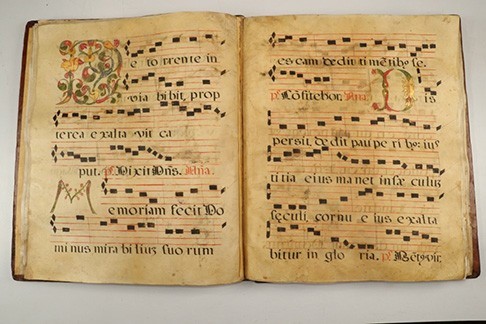 De torrente in
via bibit, prop
terea exalta vit ca
put. ps. Dixit Dñs. Ana.
Memoriam fecit Do
minus mira biliuz suorum
escam dedit timẽtibꝰ se.
ps. Cõfitebor. Ana. Dis
persit, dedit pau pe ribꝰ: ius
titia eius manet in sæculuz
sęculi, cornu e ius exalta
bitur in glo ria. ps. Beatꝰ vir.